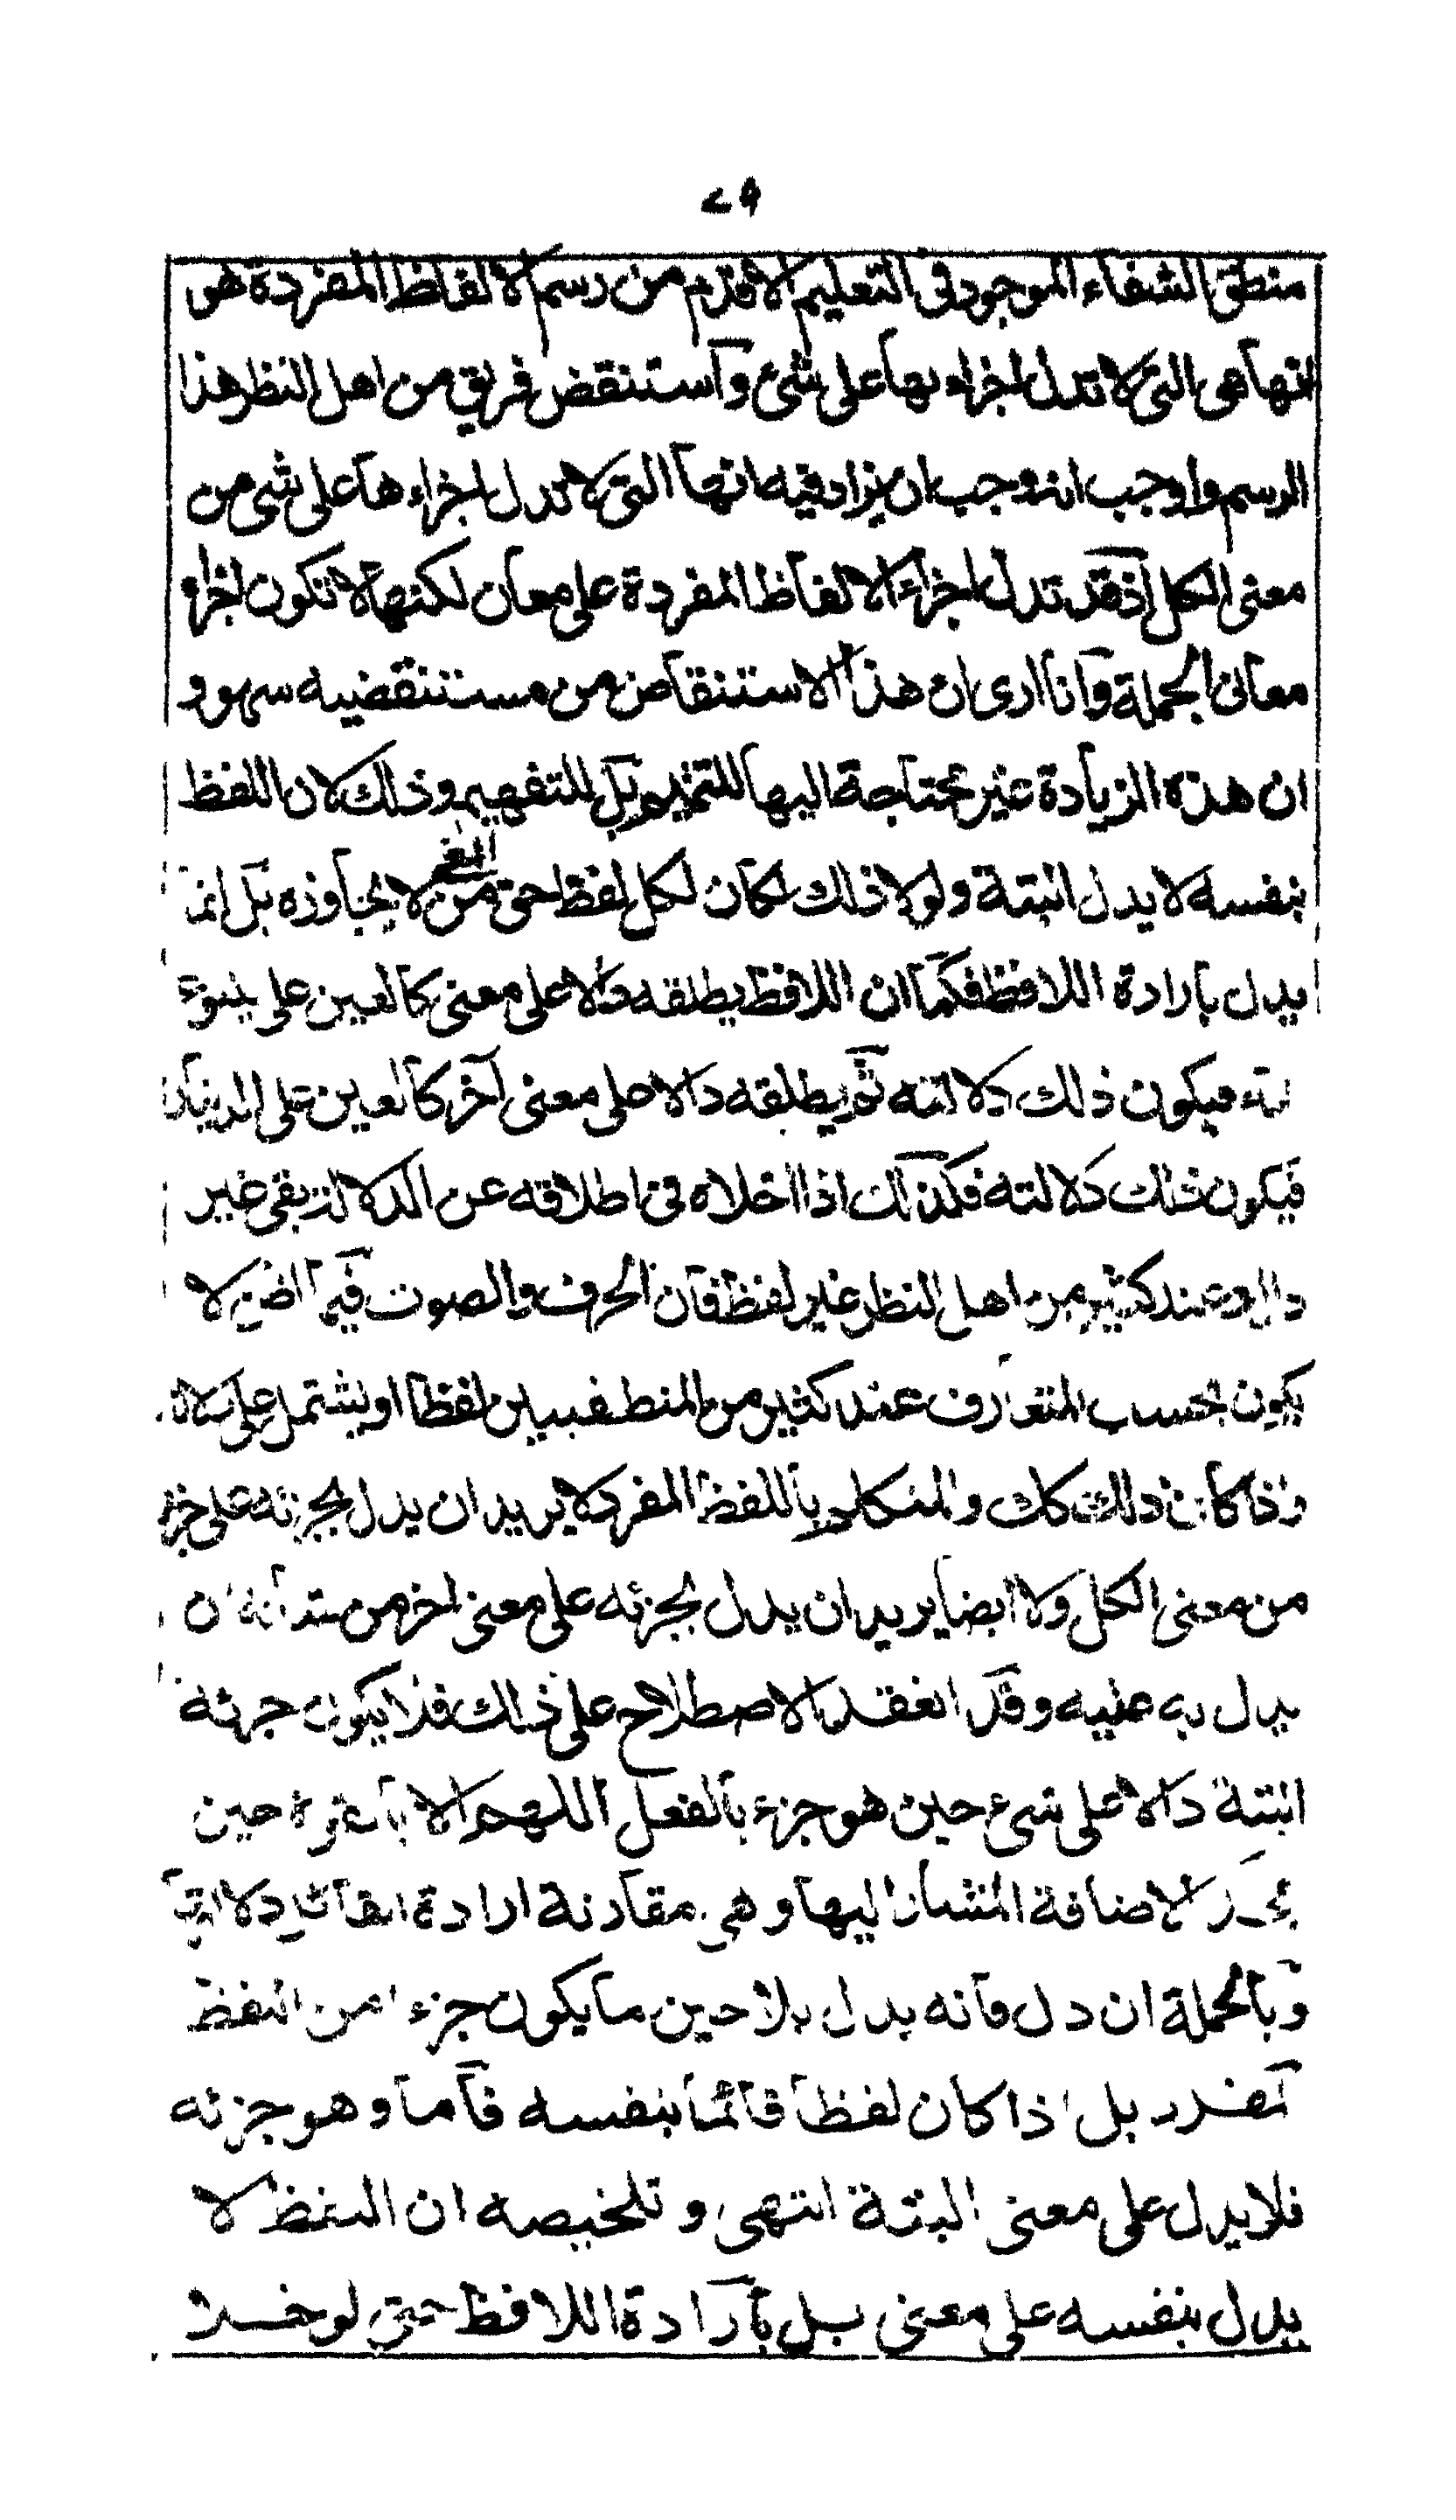 ٢٩
منطق الشفاء الموجود فى التعليم الاقدم من رسم الالفاظ المفردة هو
انها هى التى لا تدل اجزاء بها على شئ و استنقض فريق من اهل النظر هذا
الرسم و اوجب انه وجب ان يزاد فيه انها التى لا تدل اجزاءها على شى من
معنى الكل اذ قد تدل اجزاء الالفاظ المفردة على معان لكنها لا تكون اجزاء
معانى الجملة و انا ارى ان هذا الاستنقاض من مستنقضيه سهو و
ان هذه الزيادة غير محتاجة اليها للتتميم بل للتفهيم و ذلك لان اللفظ
بنفسه لا يدل البتة و لولا ذلك لكان لكل لفظ حق من المعنى لا يجاوزه بل انما
يدل بارادة اللافظ فكما ان اللافظ يطلقه دالا على معنى كالعين على ينبوع
فيكون ذلك دلالته ثم يطلقه دالا على معنى آخر كالعين على الدينار
فيكون ذلك دلالته فكذلك اذا اخلاه فى اطلاقه عن الدلالة بقى غير
دال و عند كثير من اهل النظر غير لفظ فان الحرف و الصوت فيما اظن لا
يكون بحسب المتعارف عند كثير من المنطقيين لفظا او يشتمل على دلالة
و اذا كان ذلك كك و المتكلم باللفظ المفرد لا يريد ان يدل بجزئه على جزء
من معنى الكل و لا ايضا يريد ان يدل بجزئه على معنى اخر من شانه ان
يدل به عليه و قد انعقد الاصطلاح على ذلك فلا يكون جزئه
البتة دالا على شىء حين هو جزء بالفعل اللهم الا بالقوة حين
يجد الاضافة المشار اليها و هى مقارنة ارادة القائل دلالة به
و بالجملة ان دل فانه يدل بلا حين ما يكون جزءا من اللفظ
المفرد بل اذا كان لفظا قائما بنفسه فاما و هو جزئه
فلا يدل على معنى البتة انتهى و تلخيصه ان اللفظ لا
يدل بنفسه على معنى بل بارادة اللافظ حتى لو خلا